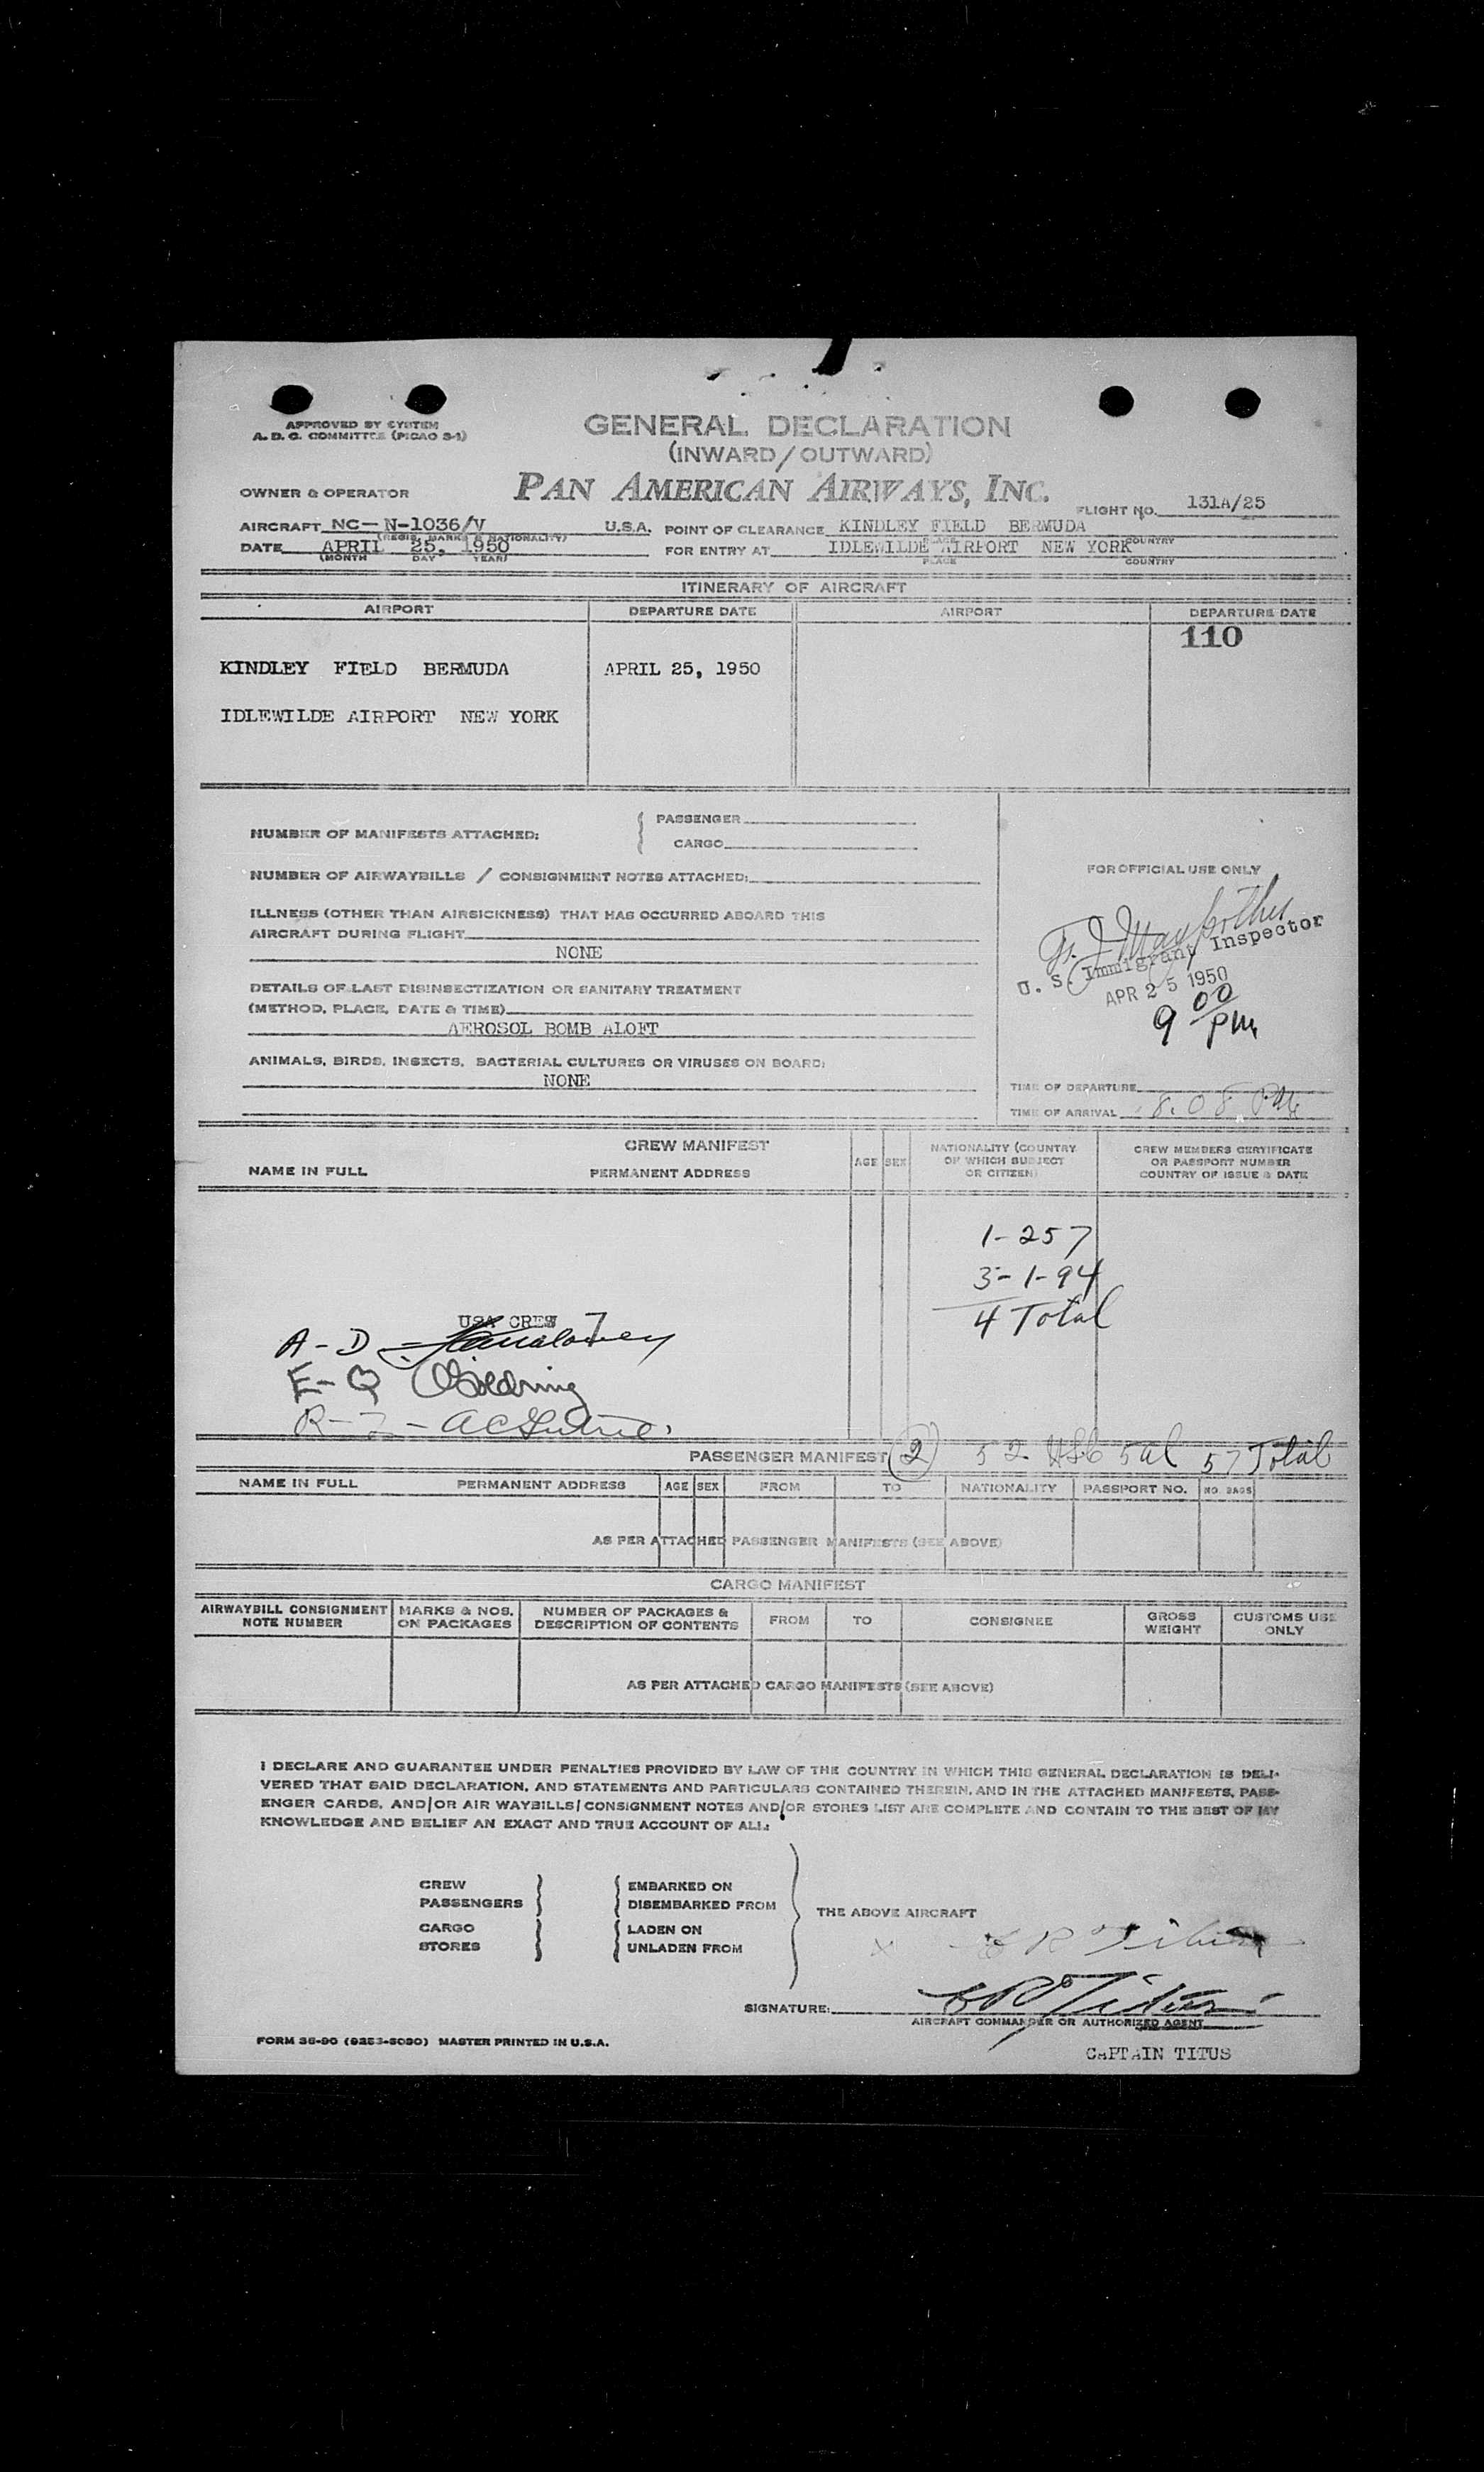 APPROVED BY SYSTEM
A. D. C. COMMITTEE (PICAO S-1)
GENERAL DECLARATION
(INWARD/OUTWARD)
OWNER & OPERATOR PAN AMERICAN AIRWAYS, INC.
FLIGHT NO. 131A/25
AIRCRAFT NC- N-1036/V U.S.A. POINT OF CLEARANCE KINDLEY FIELD BERMUDA
(REGIS. MARKS & NATIONALITY) PLACE COUNTRY
DATE APRIL 25, 1950 FOR ENTRY AT IDLEWILDE AIRPORT NEW YORK
(MONTH DAY YEAR) PLACE COUNTRY
ITINERARY OF AIRCRAFT
AIRPORT DEPARTURE DATE AIRPORT DEPARTURE DATE
110
KINDLEY FIELD BERMUDA APRIL 25, 1950
IDLEWILDE AIRPORT NEW YORK
NUMBER OF MANIFESTS ATTACHED: PASSENGER
CARGO
NUMBER OF AIRWAYBILLS / CONSIGNMENT NOTES ATTACHED:
FOR OFFICIAL USE ONLY
ILLNESS (OTHER THAN AIRSICKNESS) THAT HAS OCCURRED ABOARD THIS
AIRCRAFT DURING FLIGHT
NONE
U. S. Immigrant Inspector
APR 25 1950
9 00 PM
DETAILS OF LAST DISINSECTIZATION OR SANITARY TREATMENT
(METHOD, PLACE, DATE & TIME)
AEROSOL BOMB ALOFT
ANIMALS, BIRDS, INSECTS, BACTERIAL CULTURES OR VIRUSES ON BOARD:
NONE
TIME OF DEPARTURE
TIME OF ARRIVAL 8.08 PM
CREW MANIFEST
NAME IN FULL PERMANENT ADDRESS AGE SEX NATIONALITY (COUNTRY OF WHICH SUBJECT OR CITIZEN) CREW MEMBERS CERTIFICATE OR PASSPORT NUMBER COUNTRY OF ISSUE & DATE
1-257
3-1-94
4 Total
USA CREW 7
A-D
E-Q Goldring
R-Z
PASSENGER MANIFEST (2) 52 USC 5al 57 Total
NAME IN FULL PERMANENT ADDRESS AGE SEX FROM TO NATIONALITY PASSPORT NO. NO. BAGS
AS PER ATTACHED PASSENGER MANIFESTS (SEE ABOVE)
CARGO MANIFEST
AIRWAYBILL CONSIGNMENT NOTE NUMBER MARKS & NOS. ON PACKAGES NUMBER OF PACKAGES & DESCRIPTION OF CONTENTS FROM TO CONSIGNEE GROSS WEIGHT CUSTOMS USE ONLY
AS PER ATTACHED CARGO MANIFESTS (SEE ABOVE)
I DECLARE AND GUARANTEE UNDER PENALTIES PROVIDED BY LAW OF THE COUNTRY IN WHICH THIS GENERAL DECLARATION IS DELI-
VERED THAT SAID DECLARATION, AND STATEMENTS AND PARTICULARS CONTAINED THEREIN, AND IN THE ATTACHED MANIFESTS, PASS-
ENGER CARDS, AND/OR AIR WAYBILLS/CONSIGNMENT NOTES AND/OR STORES LIST ARE COMPLETE AND CONTAIN TO THE BEST OF MY
KNOWLEDGE AND BELIEF AN EXACT AND TRUE ACCOUNT OF ALL:
CREW EMBARKED ON
PASSENGERS DISEMBARKED FROM
THE ABOVE AIRCRAFT
CARGO LADEN ON
STORES UNLADEN FROM
x R Titus
SIGNATURE: R Titus
AIRCRAFT COMMANDER OR AUTHORIZED AGENT
FORM 36-90 (9253-5030) MASTER PRINTED IN U.S.A.
CAPTAIN TITUS